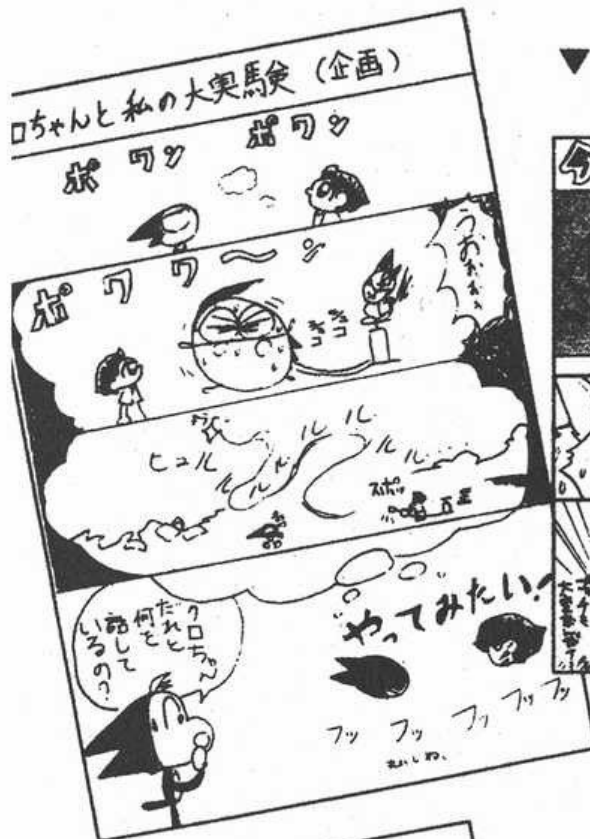 ロちゃんと私の大実験（企画）
ポワン ポワン
ポワワ〜ン
うおぉぉぉ
シュコ
シュコ
ヒュルルルルルルルル
スポッ
クロちゃん
だれと
何を
話して
いるの?
"やってみたい!"
フッ フッ フッ フッ フッ